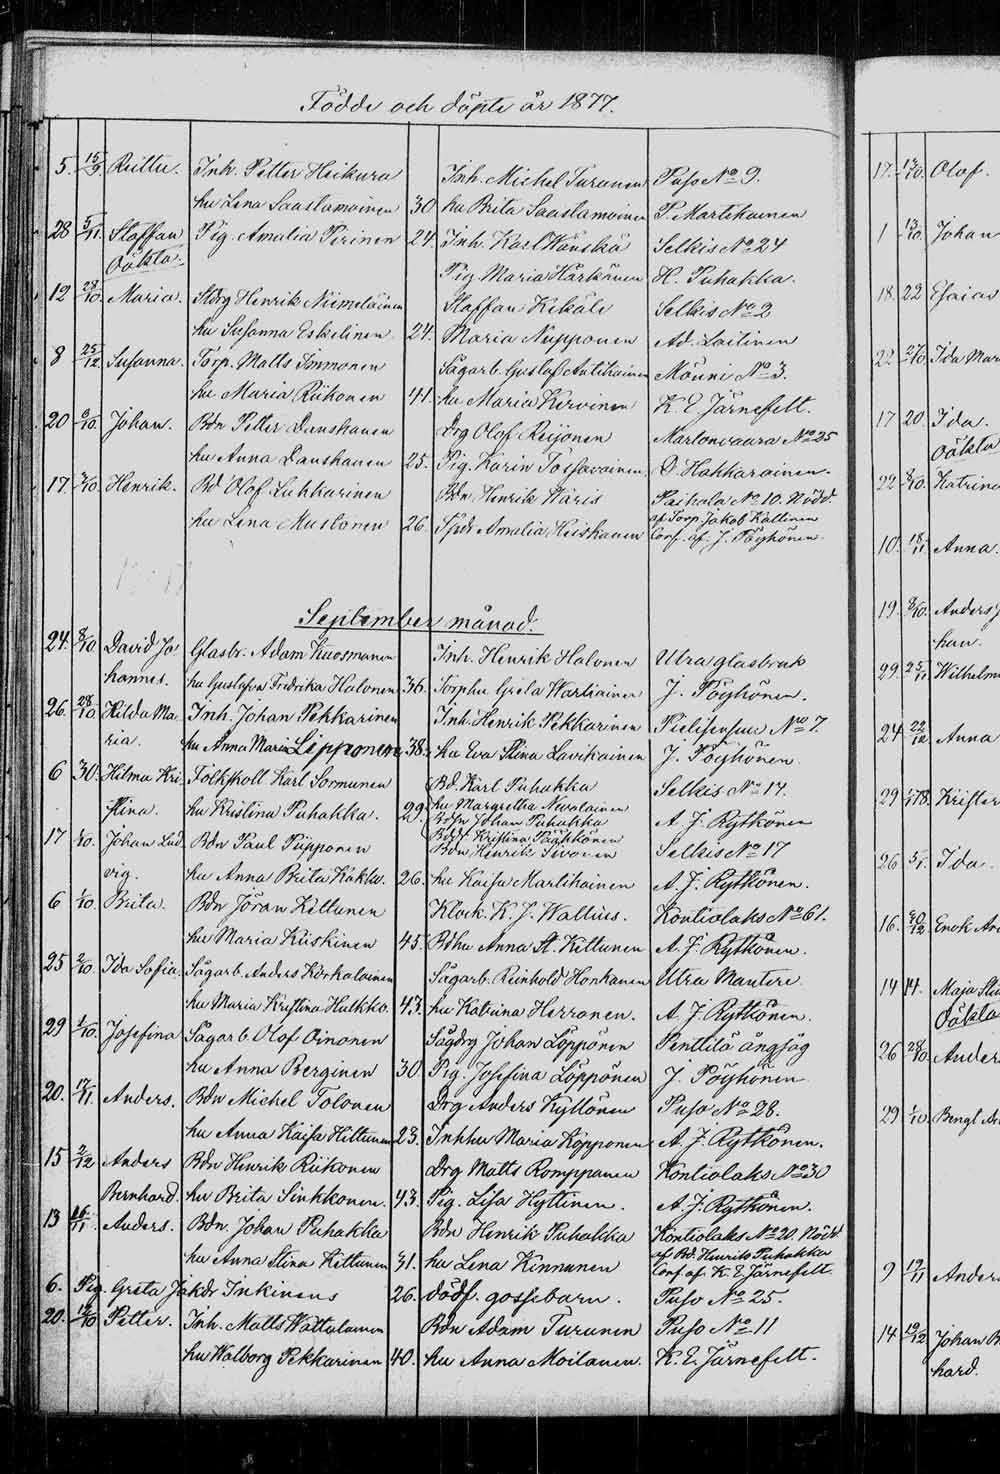 Födde och döpte år 1877.
5. 15/9. Reittu. Inh. Petter Heikura Inh. Michel Turunen Puso No 9.
hu Lena Saastamoinen 30 hu Brita Saastamoinen P. Martikainen
28 5/11. Staffan Pig. Amalia Pirinen 24. Inh. Karl Wänskä Selkis No 24
Oäkta. Pig Maria Härkänen H. Puhakka.
12 28/10. Maria. Stdrg Henrik Niemeläinen Staffan Kekäle Selkis No 2
hu Susanna Eskelinen. 24. Maria Nupponen Ad. Laitinen
8 25/12. Susanna. Torp. Matts Immonen Sågarb. Gustaf Antikainen Mönni No 3.
hu Maria Riikonen 41. hu Maria Kervinen K. E. Järnefelt.
20 6/10. Johan. Bdn Petter Danskanen Drg Olof Reijonen Martonvaara No 25
hu Anna Danskanen 25. Pig. Karin Tossavainen O. Hakkarainen.
17. 3/10. Henrik. Bd Olof Lukkarinen Bdn. Henrik Wäris Paihola No 10. Nödd.
af Torp. Jakob Kättinen
hu Lena Mustonen 26. Spdr Amalia Heiskanen Conf. af. J. Pöyhönen.
September månad.
24. 8/10. David Jo- Glasbr. Adam Kuosmanen Inh. Henrik Halonen Utra glasbruk
hannes. hu Gustafva Fredrika Halonen 36. Torphu Greta Wartiainen J. Pöyhönen.
26. 28/10. Hilda Ma- Inh. Johan Pekkarinen Inh. Henrik Pekkarinen Pielisensuu No 7.
ria. hu Anna Maria Lipponen 38. hu Eva Stina Lavikainen J. Pöyhönen.
6 30. Hilma Kri- Folkskoll Karl Sormunen Bd. Karl Puhakka Selkis No 17.
stina. hu Kristina Puhakka. 29. hu Margretha Nevalainen A. J. Rytkönen
Bdsn Johan Puhakka
Bddr Kristina Päykkönen
17 1/10. Johan Lud- Bdn Paul Piipponen Bdn Henrik Sivonen Selkis No 17
vig. hu Anna Brita Kokko. 26. hu Kaisa Martikainen A. J. Rytkönen.
6 1/10. Brita. Bdn Jöran Kettunen Klock. K. J. Wallius. Kontiolaks No 61.
hu Maria Kiiskinen 45. Bdhu Anna St. Kettunen A. J. Rytkönen.
25 2/10. Ida Sofia. Sågarb. Anders Korkalainen Sågarb. Reinhold Honkanen Utra Mantere.
hu Maria Kristina Hukka. 43. hu Katrina Herranen. A. J. Rytkönen.
29 1/10. Josefina Sågarb. Olof Oinonen Sågdrg Johan Löppönen Penttilä ångsåg
hu Anna Berginen 30. Pig. Josefina Löppönen J. Pöyhönen.
20. 17/11. Anders. Bdn Michel Tolonen Drg Anders Kyttönen Puso No 28.
hu Anna Kaisa Hiltunen 23. Inhhu Maria Kopponen A. J. Rytkönen.
15 2/12 Anders Bdn Henrik Riikonen Drg Matts Romppanen Kontiolaks No 30
Bernhard. hu Brita Sinkkonen. 43. Pig. Lisa Hyttinen. A. J. Rytkönen.
13 16/11. Anders. Bdn. Johan Puhakka Bdn Henrik Puhakka Kontiolaks No 20. Nödd.
af Bd. Henrik Puhakka
hu Anna Stina Kettunen 31. hu Lena Kinnunen Conf. af. K. E. Järnefelt.
6. Pig. Greta Jakdr Inkinens 26. dödf. gossebarn. Puso No 25.
20. 14/10 Petter. Inh. Matts Wattulainen Bdn Adam Turunen Puso No 11
hu Walborg Pekkarinen 40. hu Anna Moilanen. K. E. Järnefelt.
17. 13/10. Olof.
1 13/10. Johan
18. 22 Esaias
22 27/10. Ida Mar
17 20. Ida.
Oäkta
22 8/10. Katrina
10. 18/11 Anna.
19. 8/10. Anders J
han.
29. 25/11 Wilhelm
24 22/12 Anna
29 Krister
26 5/1. Ida.
16. 30/12 Enok
14 14. Maja Sti
Oäkta
26 28/10. Ander
29 1/10. Bengt
9 19/11 Ander
14 10/12 Johan B
hard.